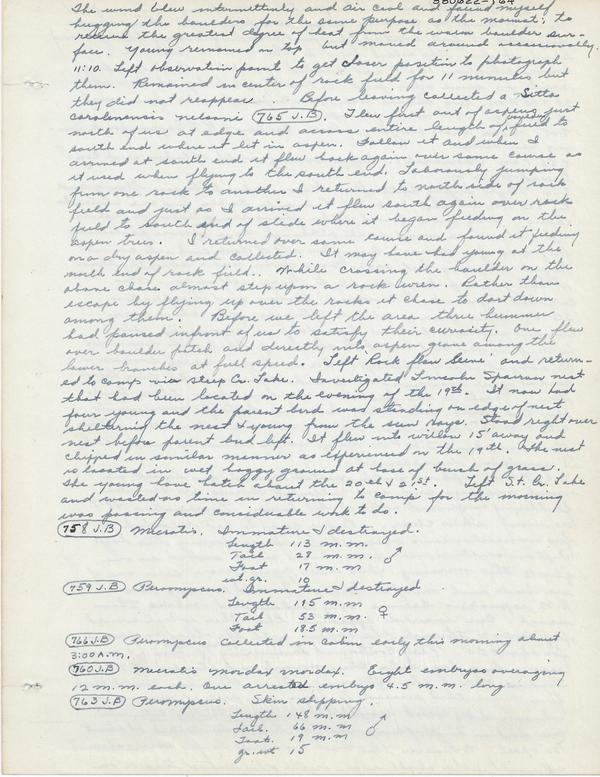 380622-164
The wind blew intermittently and air cool and found myself
hugging the boulders for the same purpose as the marmot; to
receive the greatest degree of heat from the warm boulder sur-
face. Young remained on top but moved around occassionally.
11:10. Left observation point to get closer position to photograph
them. Remained in center of rock field for 11 minutes but
they did not reappear. Before leaving collected a Sitta
carolinensis nelsoni (765 J.B). Flew first out of aspens just
north of us at edge and across entire length of field to
south end where it lit in aspen. Follow it and when I
arrived at south end it flew back again over same course as
it used when flying to the south end. Laborously jumping
from one rock to another I returned to north side of rock
field and just as I arrived it flew south again over rock
field to south end of slide where it began feeding on the
aspen trees. I returned over same course and found it feeding
on a dry aspen and collected. It may have had young at the
north end of rock field. While crossing the boulder on the
above chase almost step upon a rock wren. Rather than
escape by flying up over the rocks it chose to dart down
among them. Before we left the area three hummer
had paused infront of us to satisfy their curiosity. One flew
over boulder patch and directly into aspen grove among the
lower branches at full speed. Left Rock flow Scene' and return-
ed to camp via Steep Cr. Lake. Investigated Lincoln Sparrow nest
that had been located on the evening of the 19th. It now had
four young and the parent bird was standing on edge of nest
sheltering the nest & young from the sun rays. Stood right over
nest before parent bird left. It flew into willow 15' away and
chipped in similar manner as experienced on the 19th. The nest
is located in wet boggy ground at base of bunch of grass.
The young have hatch about the 20th & 21st. Left St. Cr. Lake
and wasted no time in returning to camp for the morning
was passing and considerable work to do.
758 J.B Microtis. Immature & destroyed.
Length 113 m.m.
Tail 28 m.m. ♂
Foot 17 m.m
wt. gr. 10
759 J.B Peromyscus. Immature & destroyed
Length 115 m.m
Tail 53 m.m. ♀
Foot 18.5 m.m
766 J.B Peromyscus collected in cabin early this morning about
3:00 A.M.
760 J.B Microtis mordax mordax. Eight embryos averaging
12 m.m. each. One arrested embryo 4.5 m.m. long
763 J.B Peromyscus. Skin slipping.
Length 148 m.m
Tail. 66 m.m ♂
Foot. 19 m.m
gr. wt 15